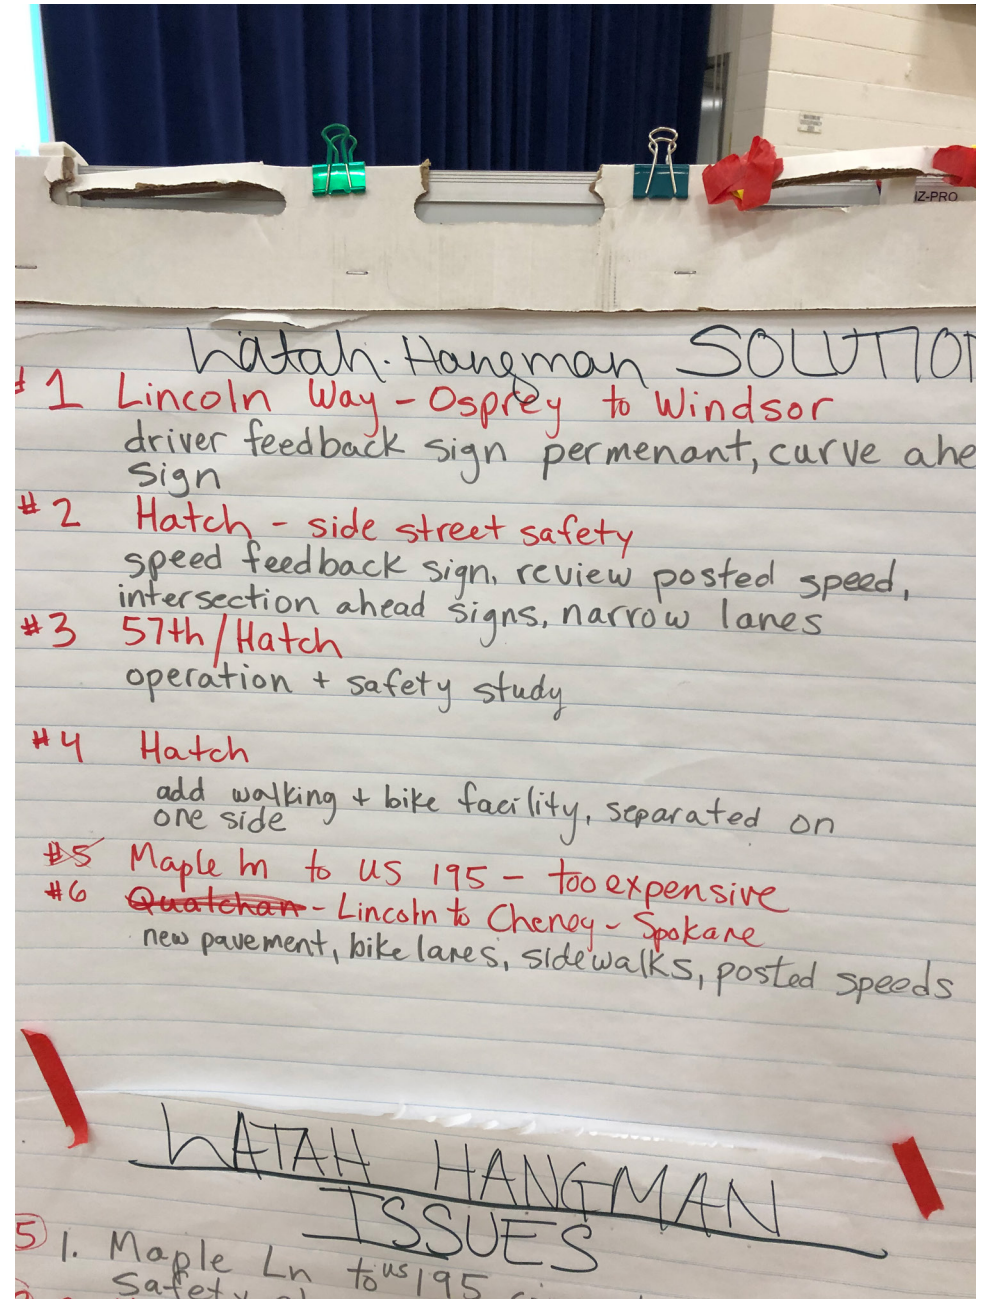 IZ-PRO
Latah-Hangman SOLUTION
#1 Lincoln Way - Osprey to Windsor
driver feedback sign permenant, curve ahe
sign
#2 Hatch - side street safety
speed feedback sign, review posted speed,
intersection ahead signs, narrow lanes
#3 57th/Hatch
operation + safety study
#4 Hatch
add walking + bike facility, separated on
one side
#5 Maple ln to US 195 - too expensive
#6 Qualchan - Lincoln to Cheney - Spokane
new pavement, bike lanes, sidewalks, posted speeds
LATAH HANGMAN
ISSUES
5 1. Maple Ln to US 195